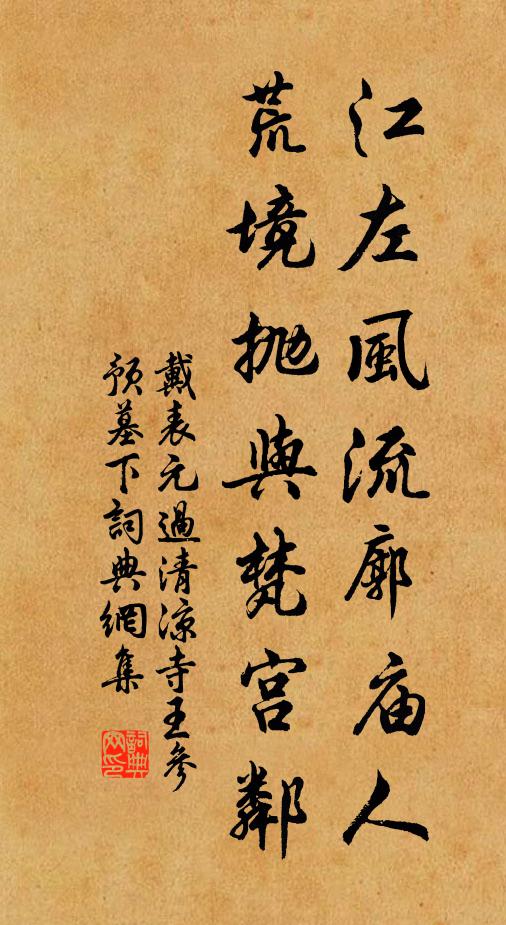 江左風流廊庙人
荒境抛與梵宫鄰
戴表元過清涼寺王參
預墓下詞典網集
詞典網印